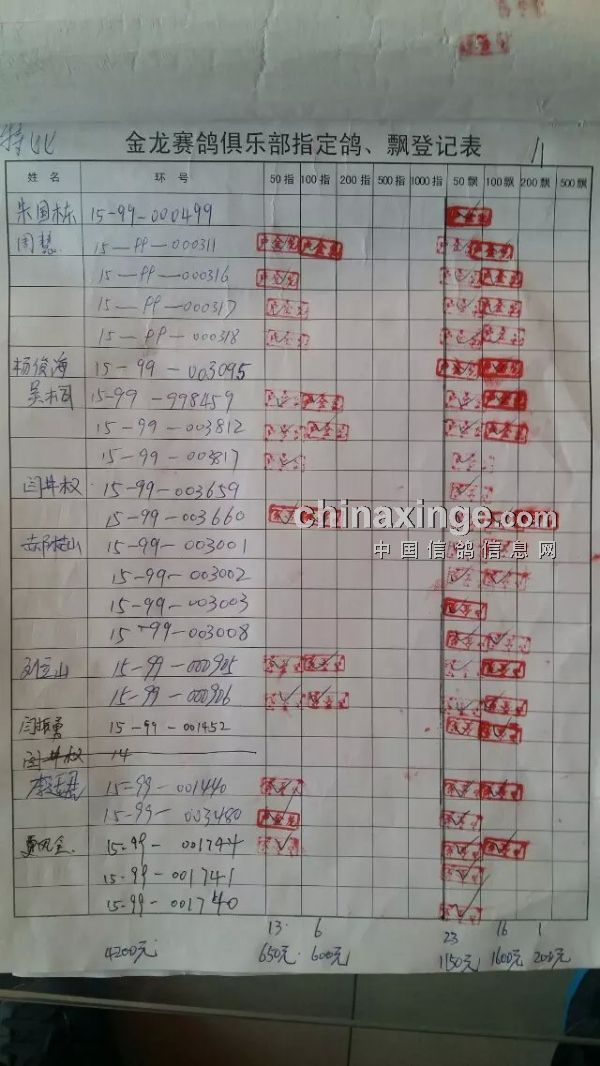 特比
金龙赛鸽俱乐部指定鸽、飘登记表
姓名 环号 50指 100指 200指 500指 1000指 50飘 100飘 200飘 500飘
朱国栋 15-99-000499
周慧 15-99-000311
15-99-000316
15-99-000317
15-99-000318
杨俊海 15-99-003095
吴桐 15-99-998459
15-99-003812
15-99-003817
闫井权 15-99-003659
15-99-003660
chinaxinge.com
中国信鸽信息网
郝桂山 15-99-003001
15-99-003002
15-99-003003
15-99-003008
刘宝山 15-99-000905
15-99-000906
闫振勇 15-99-001452
闫井权 14
15-99-001440
15-99-003480
15-99-001744
15-99-001741
15-99-001740
13 6 23 16 1
4200元 650元 600元 1150元 1600元 200元